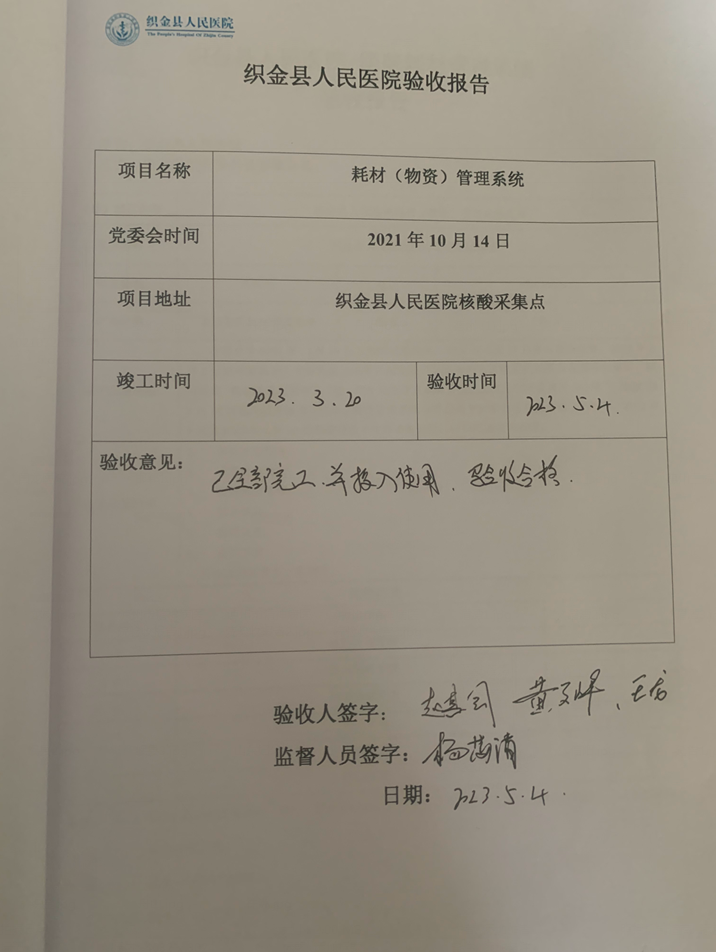 织金县人民医院
The People's Hospital Of Zhijin County
织金县人民医院验收报告
项目名称 耗材（物资）管理系统
党委会时间 2021 年 10 月 14 日
项目地址 织金县人民医院核酸采集点
竣工时间 2023.3.20 验收时间 2023.5.4.
验收意见： 已全部完工.并投入使用.验收合格.
验收人签字： 黄
监督人员签字： 杨
日期： 2023.5.4.